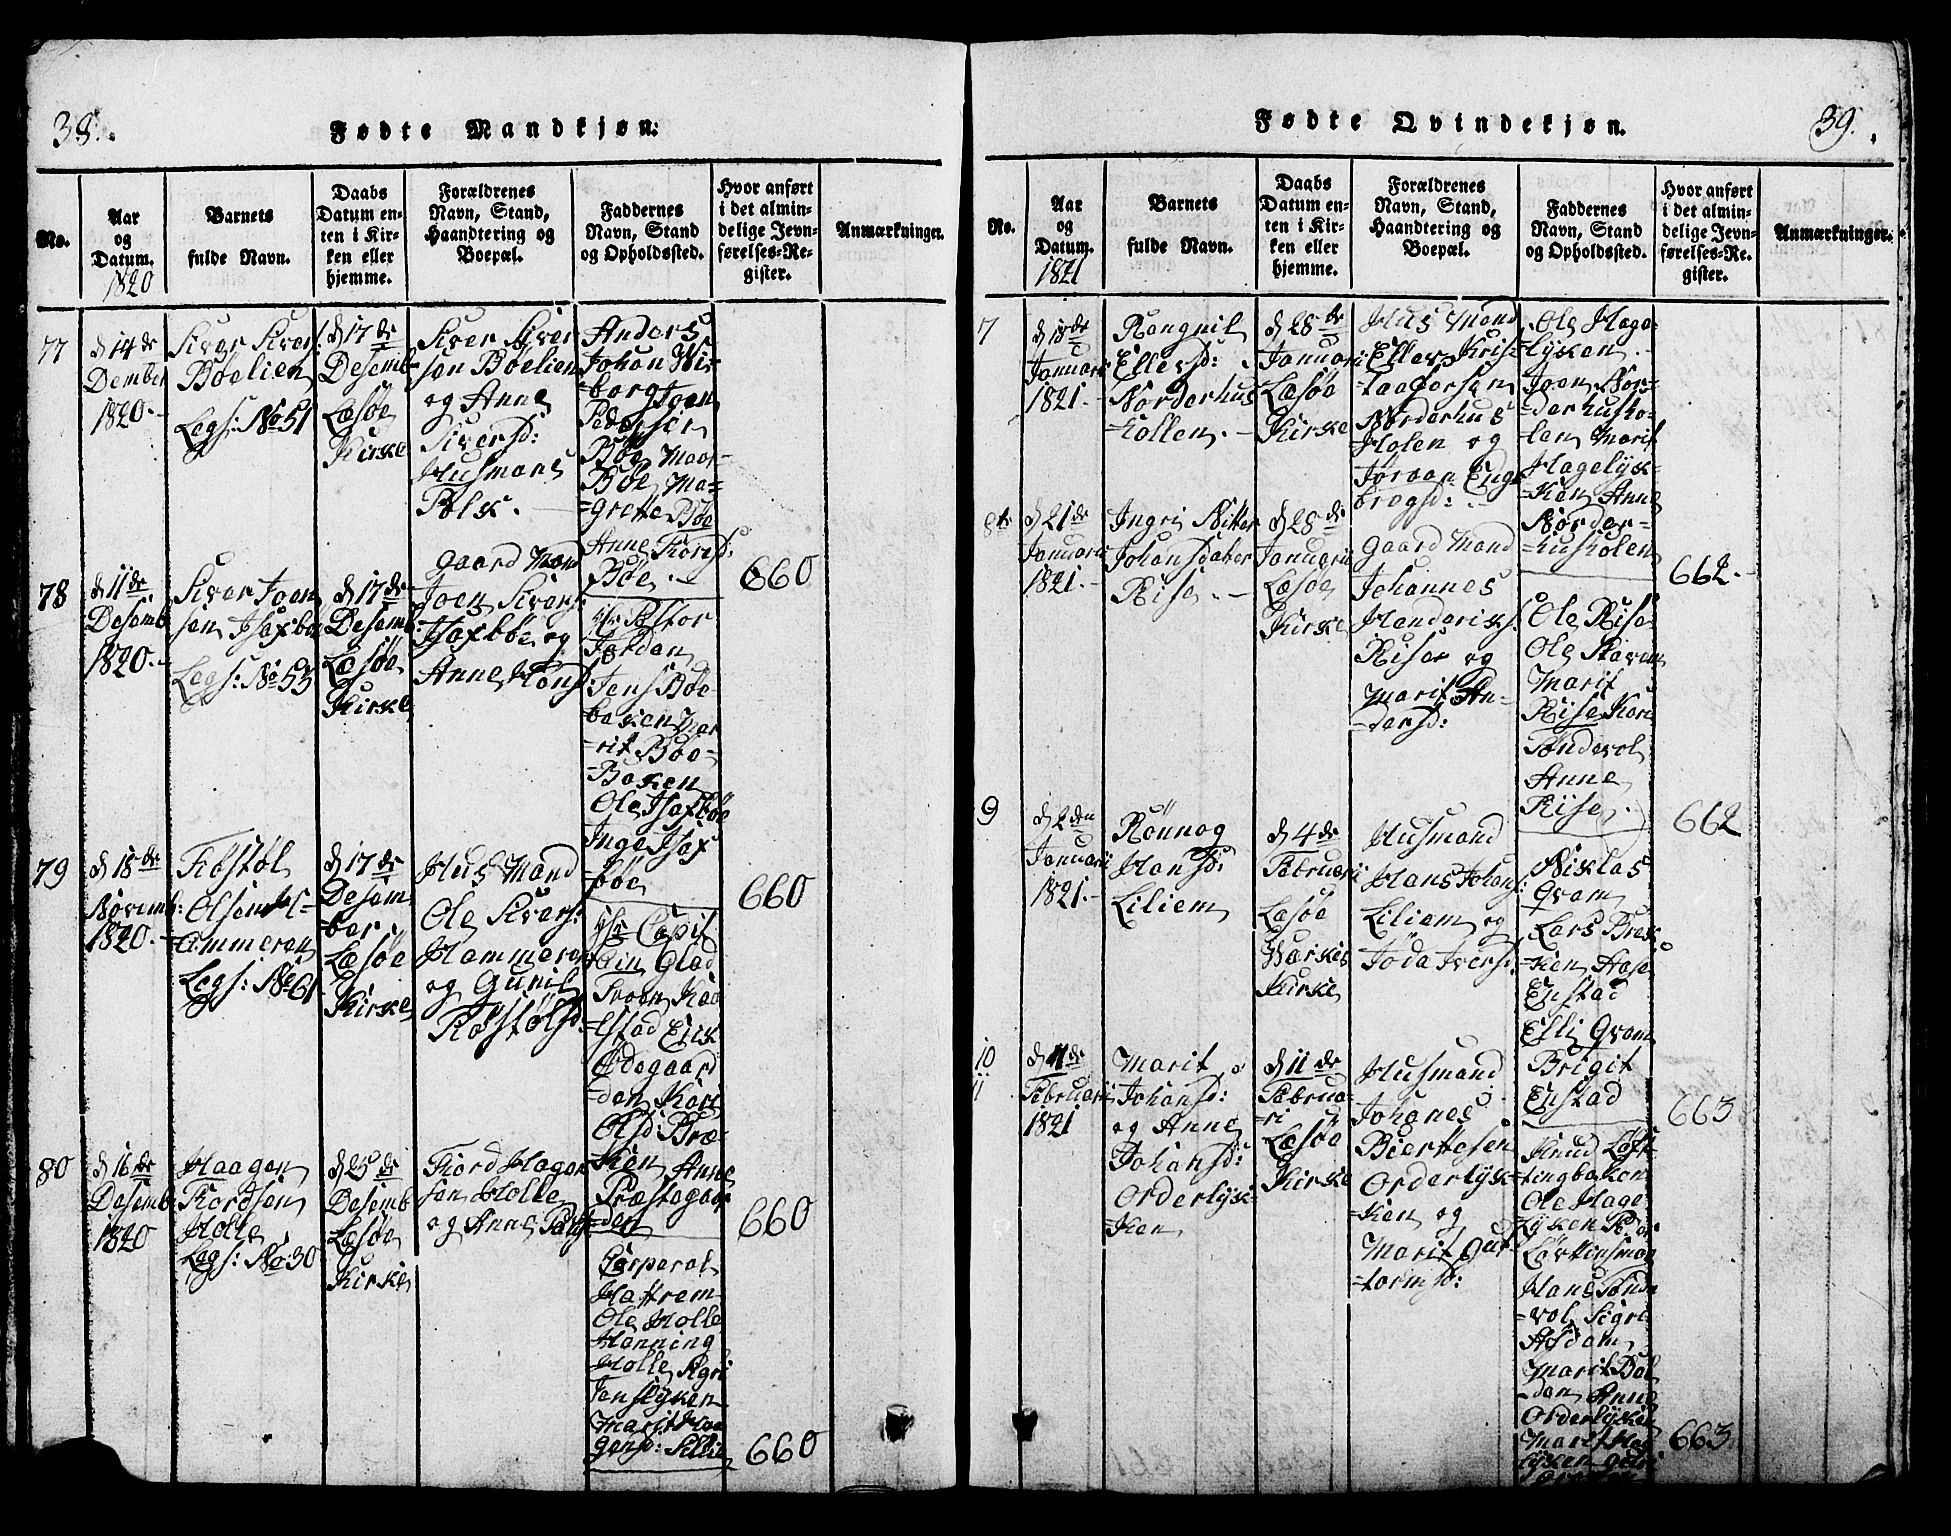 38.
Fødte Mandkjøn:
No.
Aar
og
Datum.
1820
Barnets
fulde Navn.
Daabs
Datum en-
ten i Kir-
ken eller
hjemme.
Forældrenes
Navn, Stand,
Haandtering og
Boepæl.
Faddernes
Navn, Stand
og Opholdssted.
Hvor anført
i det almin-
delige Jevn-
førelses-Re-
gister.
Anmærkninger.
77
d 14 de
Dember
1820.
Siver Siver
Böelien
Legs: No 51
d 17 de
Desemb
Læsöe
Kirke
Siver Siver
sen Böelien
og Anne
Siversd:
Husmans
Folk.
Anders
Johan Wi-
borg Joen
Pedersen
Böe Mari
Böe Ma-
=grette Böe
Anne
Böe
660
78
d 11 de
Desemb
1820.
Siver Joen
sen Isaxböe
Legs: No 53
d 17 de
Desemb:
Læsöe
Kirke
gaard Mand
Joen Sivers:
Isaxböe og
Anne
Hr Pastor
Jordan
Jens Böe-
baken Mar
=rit Böe-
Baken
Ole Isaxböe
Inge Isax
=böe
660
79
d 18 de
Novemb:
1820.
Olsen
=ammeren
Legs: No 61
d 17 de
Desem
ber
Læsöe
Kirke
Hus Mand
Ole Sivers:
Hammeren
og Gunil
Hr Capit
Glad
=lstad Erik
Ødegaard
=den Kari
Olsd: Bræ-
=ken Anne
Præstegaar
=den
660
80
d 16 de
Desemb
1820
Haagen
Fiordsen
Holle
Legs: No 30
d 25 de
Desemb
Læsöe
Kirke
Fiord Hagen
sen Holle
og Anne
Corperal
Hattrem
Ole Holle
Henning
Holle
Marit Haa
gensd:
660
39.
Fødte Qvindekjøn.
No.
Aar
og
Datum.
1821
Barnets
fulde Navn.
Daabs
Datum en-
ten i Kir-
ken eller
hjemme.
Forældrenes
Navn, Stand,
Haandtering og
Boepæl.
Faddernes
Navn, Stand
og Opholdssted.
Hvor anført
i det almin-
delige Jevn-
førelses-Re-
gister.
Anmærkninger.
7
d 18 de
Januari
1821.
Rangnil
Ellersd:
Norderhus
Kollen.
d 28 de
Januari
Læsöe
Kirke
Hus Mand
Ellev Kris
Norderhus
Holen og
Jöraan Enge
bregsd:
Ole Hage-
lyken
Joen Nor-
=derhusho-
len Marit
Hagelyk-
=ken Anne
Norder-
=husholen
662.
8
d 21 de
Januari
1821.
Ingri
Johansdater
Rise.
d 28 de
Januari
Læsöe
Kirke
gaard Mand
Johannes
Henderiks:
Rise og
Marit An-
=dersd:
Ole Rise
Ole
Marit
Rise Kari
Sandevol
Anne
Rise.
662
9
d 2 den
Januari
1821.
Rönnog
Hansd:
Liliem
d 4 de
Februari
Læsöe
Værkes
Kirke
Husmand
Hans Johans:
Liliem og
Jöda Iversd:
Niklas
Qvam
Lars Brek
=ken Aase
Enstad
Elli Qvam
Brigit
Enstad
663
10
11
d 4 de
Februari
1821
Marit
Johansd:
og Anne
Johansd:
Orderlyk-
=ken
d 11 de
Februa-
ri
Læsöe
Kirke
Husmand
Johanes
Biertesen
Orderlyk
=ken og
Marit Gut
=tormsd:
Knud
=tingbaken
Ole Hage
lyken Peder
Hans Sande
=vol Sigri
Marit
Anne
Orderlyken
Marit Hag
lyken
663